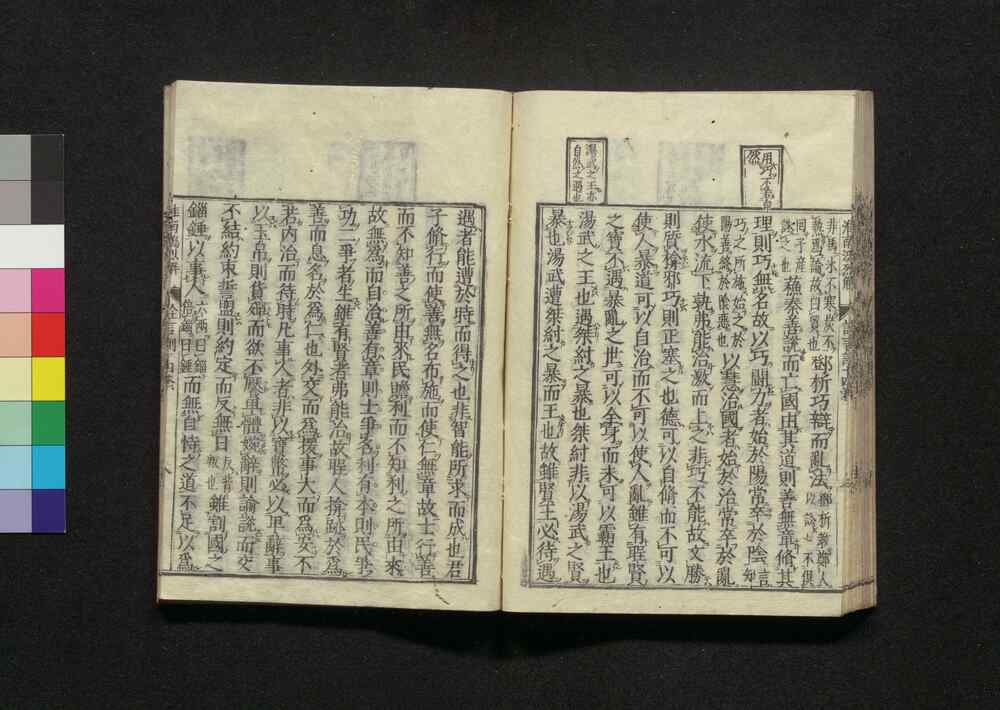 用巧
然
湯武之王亦
自然之遇也
非馬氷不寒炭不
同子産
鄧析巧辯而亂法
蘇秦善說而亡國由其道則善無章修其
理則巧無名故以巧鬪力者始於陽常卒於陰
以慧治國者始於治常卒於亂
使水流下孰弗能治激而上之非巧不能故文勝
則質揜邪巧則正塞之也德可以自修而不可以
使人暴道可以自治而不可以使人亂雖有聖賢
之寶不遇暴亂之世可以全身而未可以霸王也
湯武之王也遇桀紂之暴也桀紂非以湯武之賢
暴也湯武遭桀紂之暴而王也故雖賢王必待遇
遇者能遭於時而得之也非智能所求而成也君
子修行而使善無名布施而使仁無章故士行善
而不知善之所由來民贍利而不知利之所由來
故無爲而自治善有章則士爭名利有本則民爭
功二爭者生雖有賢者弗能治故聖人揜跡於爲
善而息名於爲仁也外交而爲援事大而爲安不
若內治而待時凡事人者非以寶幣必以卑辭事
以玉帛則貨殫而欲不厭卑體婉辭則論說而交
不結約束誓盟則約定而反無日
雖割國之
錙錘以事人
六兩曰錙
倍錙曰錘
而無自恃之道不足以爲